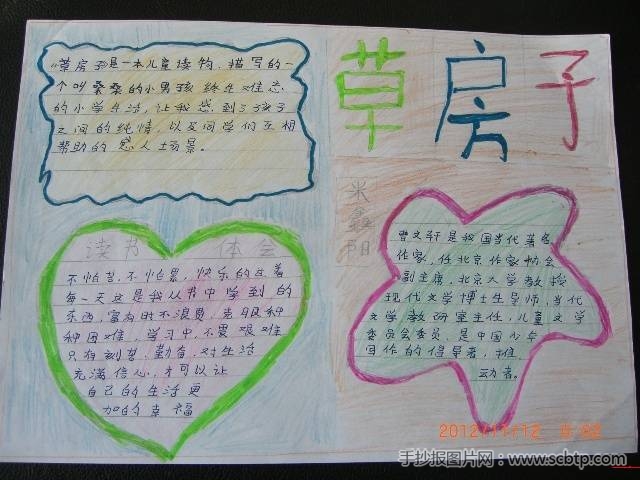 草房子
《草房子》是一本儿童读物,描写的一
个叫桑桑的小男孩 终生难忘
的小学生活,让我感到了孩子
之间的纯情,以及同学们互相
帮助的感人场景。
米鑫阳
曹文轩是我国当代著名
作家,任北京作家协会
副主席,北京大学教授
现代文学博士生导师,当代
文学教研室主任,儿童文学
委员会委员,是中国少年
写作的倡导者,推
动者。
读书 体会
不怕苦,不怕累,快乐的过着
每一天这是我从书中学到的
东西,富有时不浪费,克服种
种困难,学习中,不畏艰难
只有刻苦,勤奋,对生活
充满信心,才可以让
自己的生活更
加的幸福
2012/11/12
手抄报图片网:www.scbtp.com